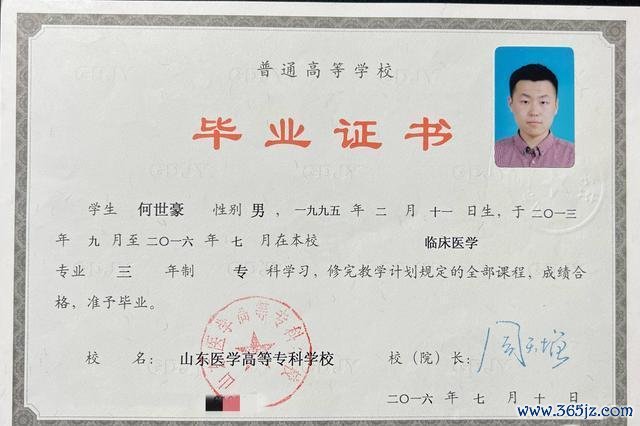 普通高等学校
毕业证书
学生 何世豪 性别 男，一九九五 年 二 月 十一 日生，于 二〇一三
年 九 月至 二〇一六 年 七 月在本校 临床医学
专业 三 年制 专 科学习，修完教学计划规定的全部课程，成绩合
格，准予毕业。
校 名： 山东医学高等专科学校 校（院）长：
山东医学高等专科学校
二〇一六 年 七 月 十 日
www.365jz.com